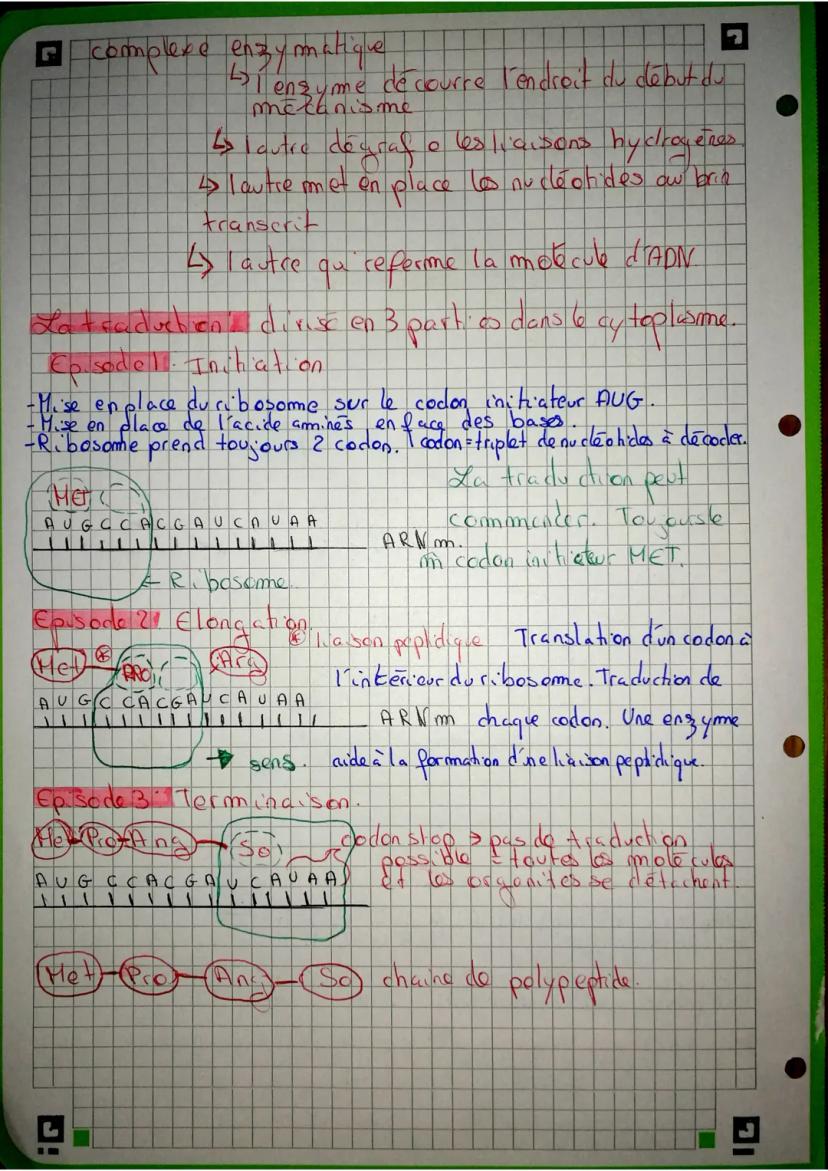 complexe enzymatique
↳ 1 enzyme découvre l'endroit du début du
mécanisme
↳ l'autre dégrafe les liaisons hydrogènes
↳ l'autre met en place les nucléotides au brin
transcrit
↳ l'autre qui referme la molécule d'ADN
La traduction divisé en 3 parties dans le cytoplasme.
Episode 1: Initiation
-Mise en place du ribosome sur le codon initiateur AUG.
-Mise en place de l'acide aminés en face des bases.
-Ribosome prend toujours 2 codon. 1 codon=triplet de nucléotides à décoder.
La traduction peut
Met
A U G C C A C G A U C A U A A
commencer. Toujours le
ARNm.
m̂ codon initiateur MET.
← Ribosome.
Episode 2: Elongation
* liaison peptidique
Translation d'un codon à
Met * PRO Arg
l'intérieur du ribosome. Traduction de
A U G C C A C G A U C A U A A
ARNm
chaque codon. Une enzyme
→ sens.
aide à la formation d'une liaison peptidique.
Episode 3: Terminaison.
Met-Pro-Ang-So
codon stop → pas de traduction
possible = toutes les molécules
A U G C C A C G A U C A U A A
et les organites se détachent.
Met-Pro-Ang-So chaine de polypeptide.